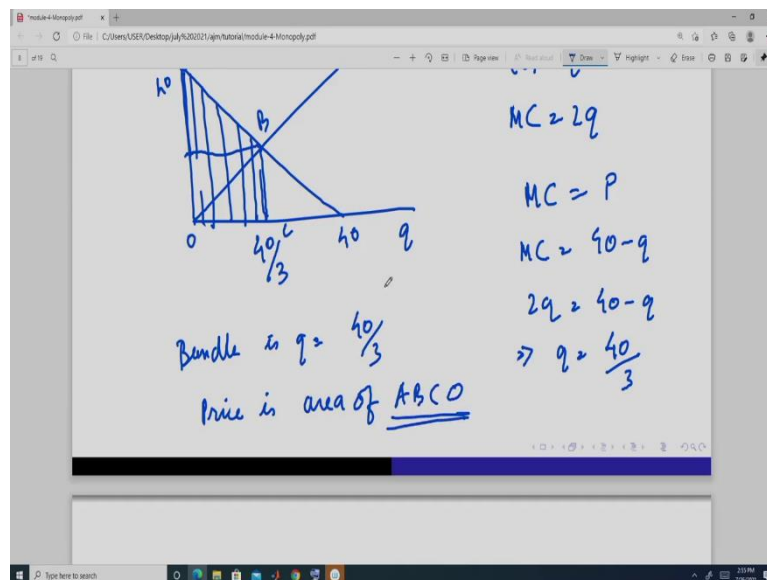 *module-4-Monopoly.pdf
File | C:/Users/USER/Desktop/july%202021/ajm/tutorial/module-4-Monopoly.pdf
8 of 18
Page view
Read aloud
Draw
Highlight
Erase
40
B
0
40/3
C
40
q
MC = 2q
MC = P
MC = 40-q
2q = 40-q
⇒ q = 40/3
Bundle is q = 40/3
Price is area of ABCO
Type here to search
2:55 PM